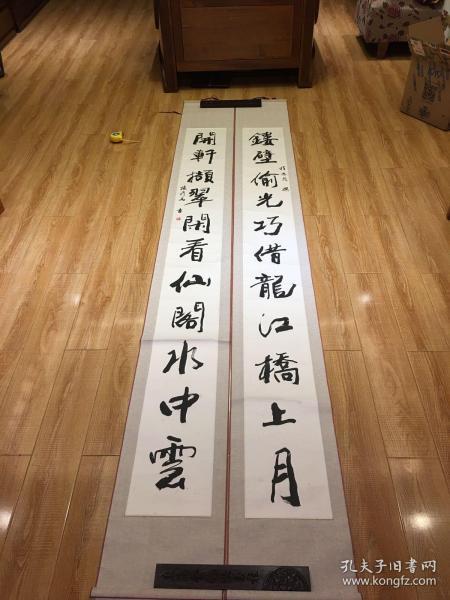 鏤壁偷光巧借龍江橋上月
開軒擷翠閑看仙閣水中雲
孔夫子旧书网
www.kongfz.com